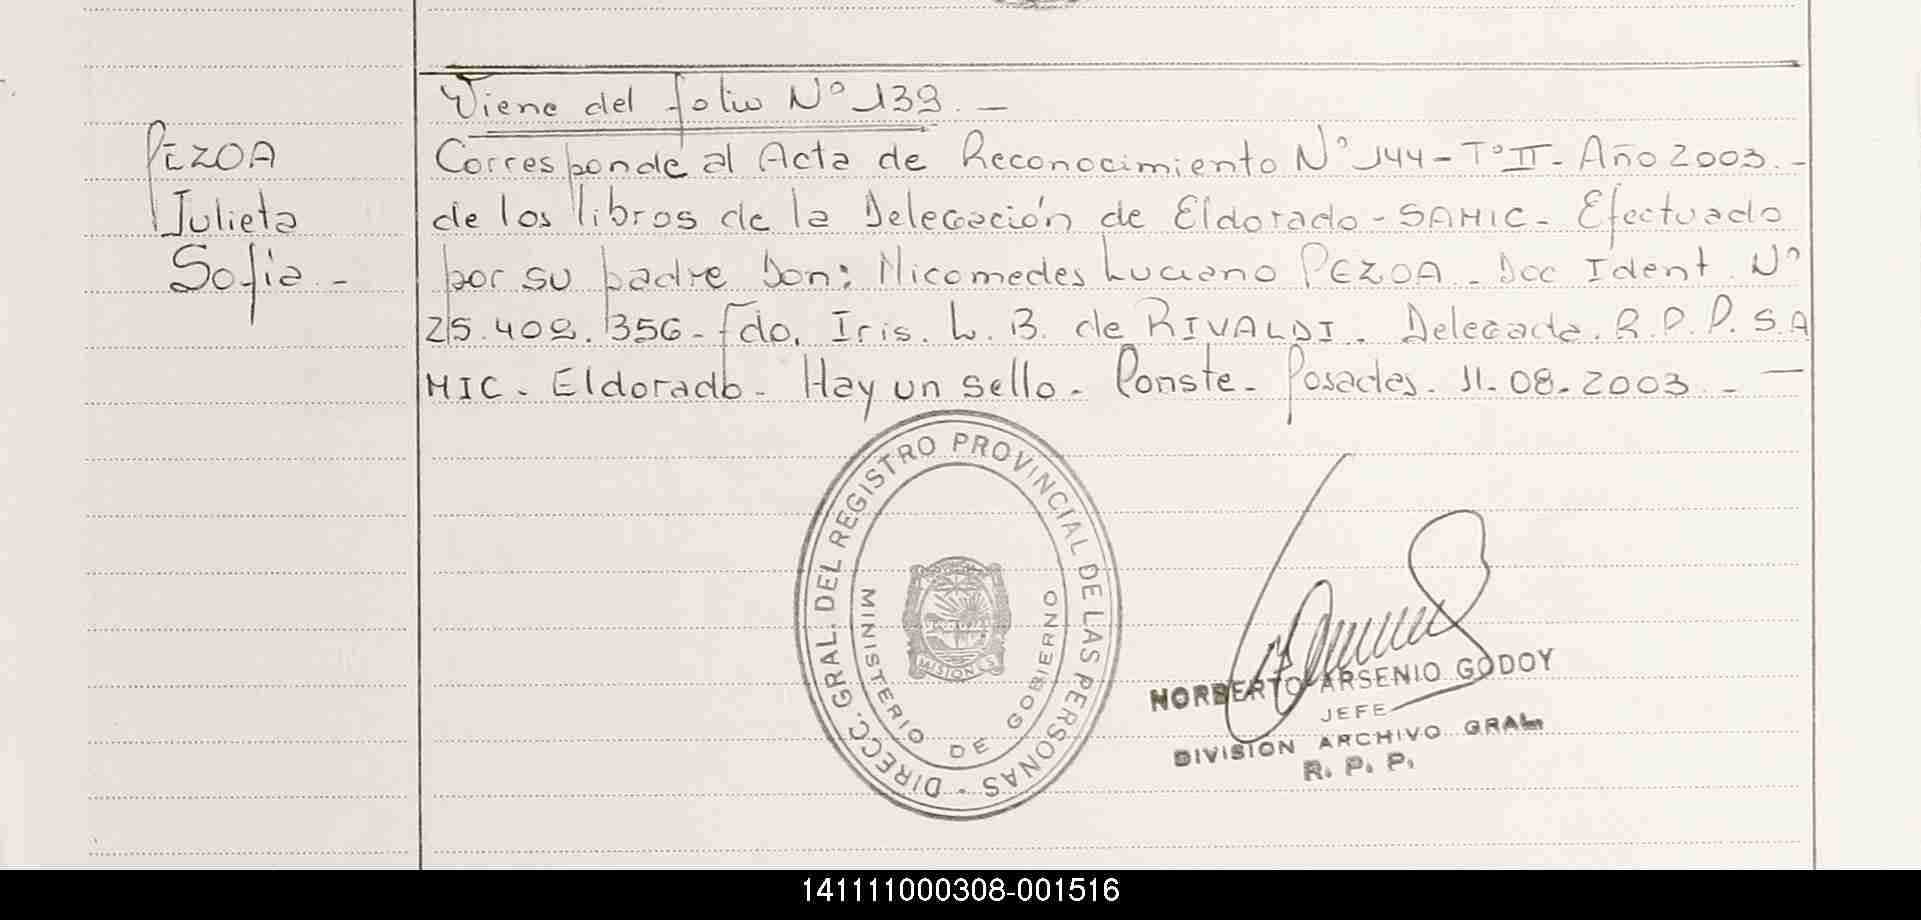 Viene del folio Nº 139. —
PEZOA
Julieta
Sofia. -
Corresponde al Acta de Reconocimiento Nº 144 - Tº II - Año 2003. -
de los libros de la Delegación de Eldorado - SAMIC - Efectuado
por su padre Don: Nicomedes Luciano PEZOA - Doc Ident. Nº
25.409.356 - Fdo. Iris. L. B. de RIVALDI. Delegada. R.P.P. SA
MIC - Eldorado - Hay un sello - Conste - Posadas. 11-08-2003. - —
DIRECC. GRAL. DEL REGISTRO PROVINCIAL DE LAS PERSONAS -
MINISTERIO DE GOBIERNO
MISIONES
NORBERTO ARSENIO GODOY
JEFE
DIVISION ARCHIVO GRAL.
R. P. P.
141111000308-001516